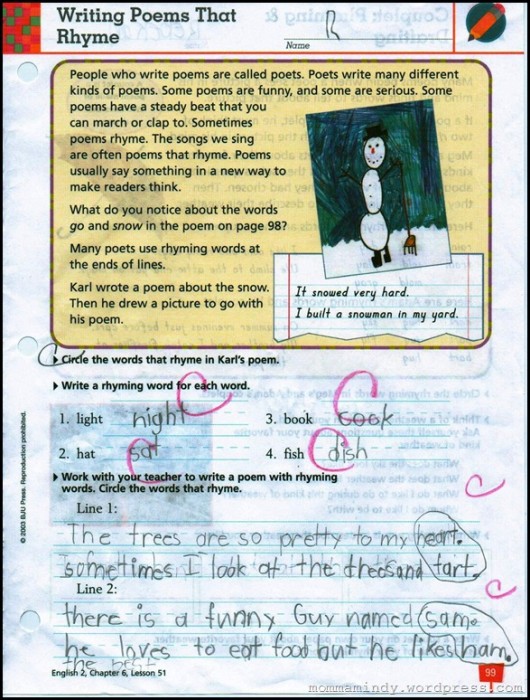 Writing Poems That
Rhyme
Name R
People who write poems are called poets. Poets write many different
kinds of poems. Some poems are funny, and some are serious. Some
poems have a steady beat that you
can march or clap to. Sometimes
poems rhyme. The songs we sing
are often poems that rhyme. Poems
usually say something in a new way to
make readers think.
What do you notice about the words
go and snow in the poem on page 98?
Many poets use rhyming words at
the ends of lines.
Karl wrote a poem about the snow.
Then he drew a picture to go with
his poem.
It snowed very hard.
I built a snowman in my yard.
Circle the words that rhyme in Karl's poem.
Write a rhyming word for each word.
1. light night
3. book cook
2. hat sat
4. fish dish
Work with your teacher to write a poem with rhyming
words. Circle the words that rhyme.
Line 1:
The trees are so pretty to my heart.
sometimes I look at the tart.
Line 2:
there is a funny Guy named sam.
he loves to eat food but he likes ham.
the best
© 2003 BJU Press. Reproduction prohibited.
English 2, Chapter 6, Lesson 51
99
mommamindy.wordpress.com